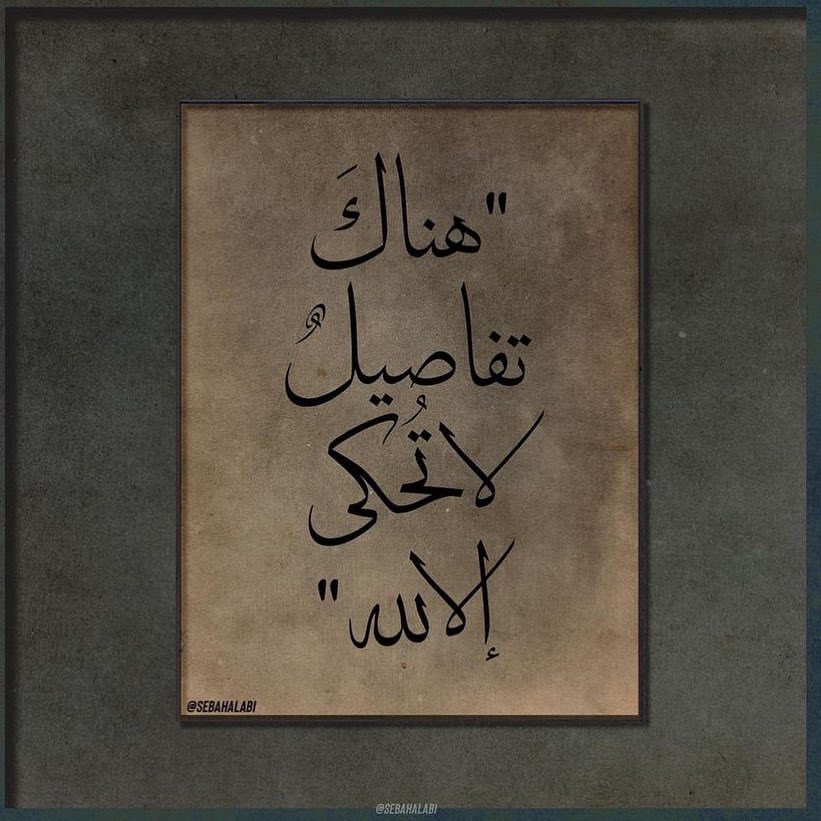 "هناكَ
تفاصيلٌ
لا تُحكى
إلا لله"
@SEBAHALABI
@SEBAHALABI